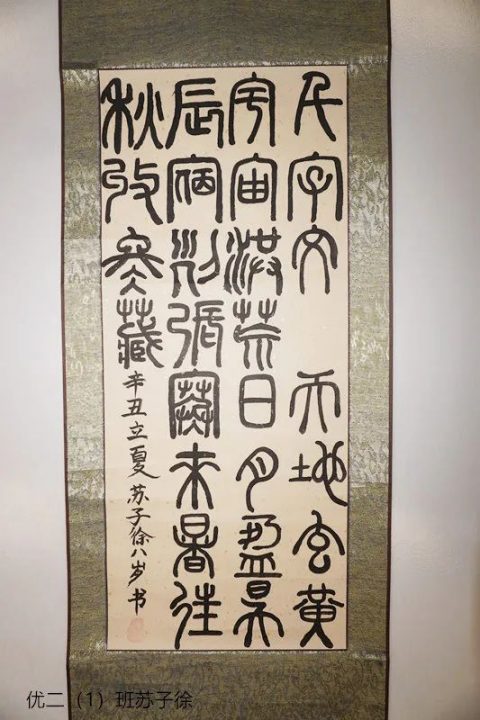 千字文 天地玄黃
宇宙洪荒日月盈昃
辰宿列張寒來暑往
秋收冬藏
辛丑立夏 苏子徐八岁书
优二（1）班苏子徐